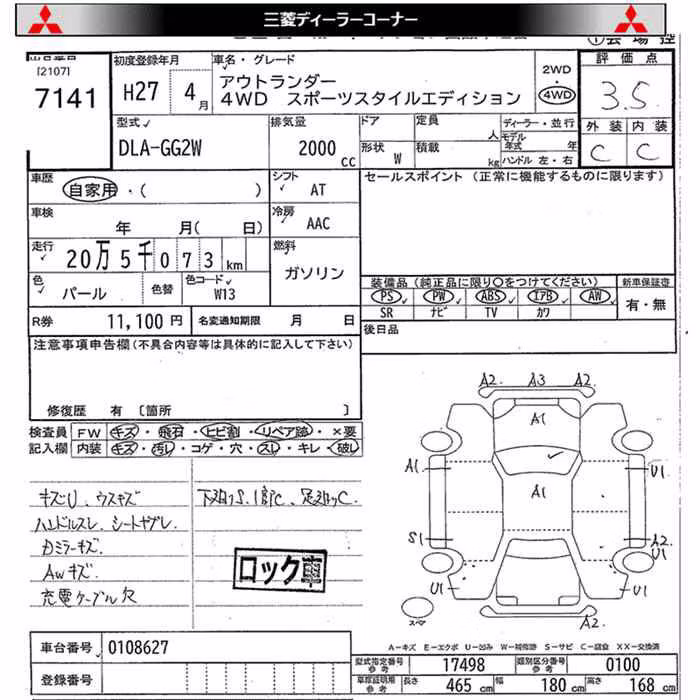 三菱ディーラーコーナー
[2107]
7141
初度登録年月
H27 4月
車名・グレード
アウトランダー
4WD スポーツスタイルエディション
2WD
4WD
評価点
3.5
外装 内装
C C
型式
DLA-GG2W
排気量
2000 cc
ドア
形状 W
定員 人
積載 kg
ディーラー・並行
モデル年式 年
ハンドル 左・右
車歴
自家用・( )
シフト
AT
セールスポイント (正常に機能するものに限ります)
車検
年 月( 日)
冷房
AAC
走行
20万5千073km
燃料
ガソリン
色
パール
色替
色コード
W13
装備品(純正品に限り○をつけてください)
PS PW ABS エアB AW
SR ナビ TV カワ
新車保証書
有・無
R券 11,100円
名変通知期限 月 日
後日品
注意事項申告欄(不具合内容等は具体的に記入して下さい)
修復歴 有 [箇所 ]
検査員
記入欄
FW キズ・飛石・ヒビ割・リペア跡・×要
内装 キズ・汚レ・コゲ・穴・スレ・キレ・破レ
キズU、ウスキズ
ハンドルスレ、シートヤブレ
Dミラーキズ
AWキズ
充電ケーブル欠
下廻りS
足廻りC
ロック車
A2 A3 A2
A1
A1
A1
U1
S1
A2
U1
U1
U1
A2
スペア
A-キズ E-エクボ U-凹み W-補修跡 S-サビ C-腐食 XX-交換済
車台番号 0108627
登録番号
型式指定番号
参考
17498
類別区分番号
参考
0100
車庫証明用
参考
長さ 465 cm
幅 180 cm
高さ 168 cm